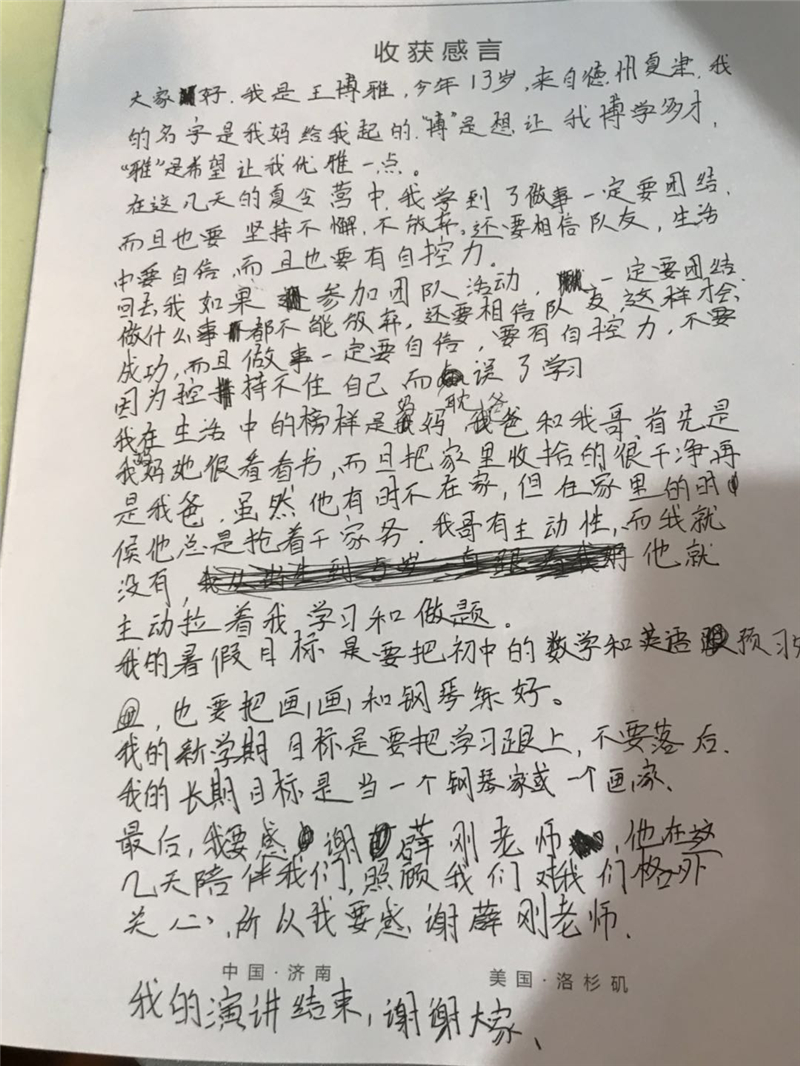 收获感言
大家好.我是王博雅,今年13岁,来自德州夏津.我
的名字是我妈给我起的."博"是想让我博学多才,
"雅"是希望让我优雅一点。
在这几天的夏令营中.我学到了做事一定要团结.
而且也要坚持不懈,不放弃。还要相信队友,生活
中要自信.而且也要有自控力。
回去我如果参加团队活动,一定要团结
做什么事都不能放弃,还要相信队友.这样才会
成功,而且做事一定要自信,要有自控力,不要
因为控持不住自己而耽误了学习
我在生活中的榜样是我妈,我爸和我哥.首先是
我妈她很看看书,而且把家里收拾的很干净再
是我爸.虽然他有时不在家,但在家里的时
候他总是抢着干家务.我哥有主动性,而我就
没有,他就
主动拉着我学习和做题。
我的暑假目标是要把初中的数学和英语预习
,也要把画画和钢琴练好。
我的新学期目标是要把学习跟上,不要落后.
我的长期目标是当一个钢琴家或一个画家.
最后,我要感谢薛刚老师,他在这
几天陪伴我们,照顾我们对我们格外
关心,所以我要感谢薛刚老师.
中国·济南 美国·洛杉矶
我的演讲结束,谢谢大家、